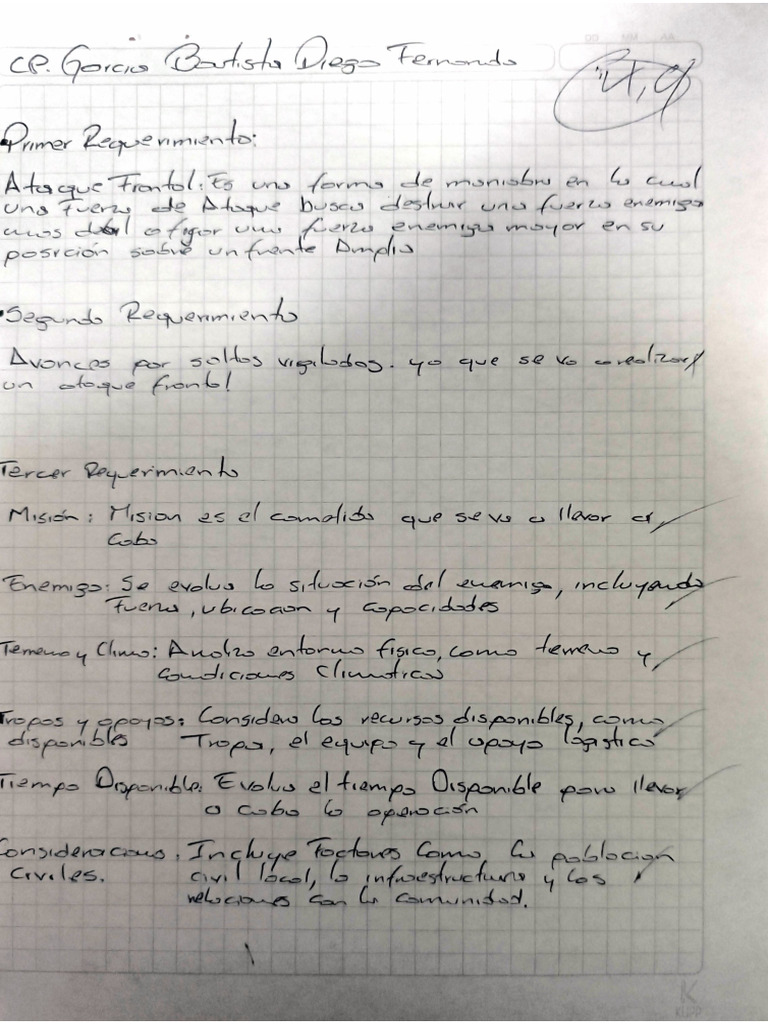 CP. Garcia Bautista Diego Fernando
Primer Requerimiento:
Ataque Frontal: Es una forma de maniobra en la cual
una Fuerza de Ataque busca destruir una fuerza enemiga
mas debil o fijar una fuerza enemiga mayor en su
posición sobre un frente Amplio
Segundo Requerimiento
Avances por saltos vigilados. ya que se va a realizar
un ataque frontal
Tercer Requerimiento
Misión: Mision es el cometido que se va a llevar a
Cabo
Enemigo: Se evalua la situación del enemigo, incluyendo
Fuerza, ubicacion y capacidades
Terreno y Clima: Analiza entorno físico, como terreno y
condiciones Climaticas
Tropas y apoyos: Considera los recursos disponibles, como
disponibles Tropa, el equipo y el apoyo lógistico
Tiempo Disponible: Evalua el tiempo Disponible para llevar
a cabo la operación
Consideraciones. Incluye Factores Como la poblacion
Civiles. civil local, la infraestructura y las
relaciones con la comunidad.